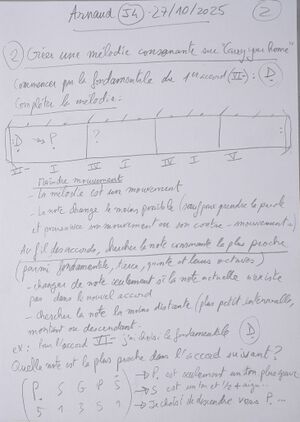 Arnaud J4 - 27/10/2025 2
2 Créer une mélodie consonante sur "Carry you Home"
Commencer par la fondamentale du 1er accord (II-) : D
Compléter la mélodie :
D → P ?
II- I IV I IV I
Moindre mouvement
- La mélodie est un mouvement
- La note change le moins possible (sauf pour prendre le parole et poursuivre son mouvement ou son contre-mouvement)
Au fil des accords, chercher la note consonante la plus proche
(parmi fondamentale, tierce, quinte et leurs octaves)
- changer de note seulement si la note actuelle n'existe
pas dans le nouvel accord
- chercher la note la moins distante (plus petit intervalle,
montant ou descendant.
ex: sur l'accord II- j'ai choisi la fondamentale D
Quelle note est la plus proche dans l'accord suivant ?
P S G P S
5 1 3 5 1
→ P est seulement un ton plus grave
→ S est un ton et 1/2 + aigu
→ Je choisi de descendre vers P ...